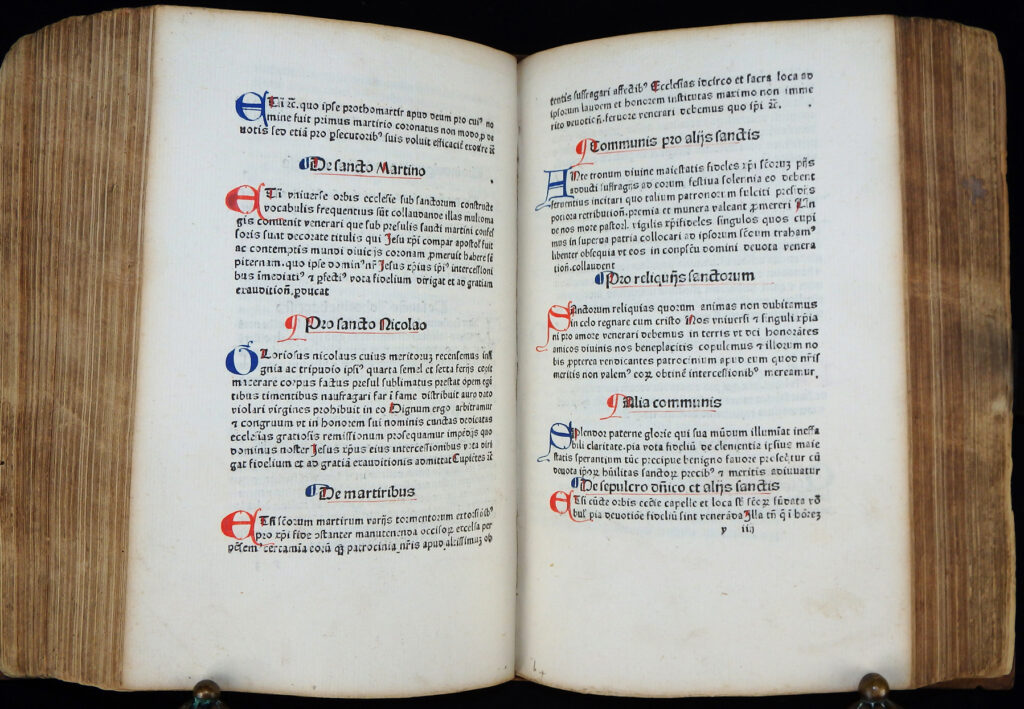 Etsi ⁊c̃. quo ipse prothomartir apud deum pro cuiꝰ no
mine fuit primus martirio coronatus non modo ꝓ de
uotis sed etiā pro ꝑsecutoribꝰ suis voluit efficaciē exorare ⁊c̃
De sancto Martino
Etsi vniuerse orbis ecclesie sub sanctorum constructe
vocabulis frequentius sūt collaudande illas multoma
gis conuenit venerari que sub presulis sancti martini confes
soris sunt decorate titulis qui Jesu xp̄i compar apostol fuit
ac contemptis mundi diuicijs coronam ꝓmeruit habere sē
piternam. quo ipse dominꝰ nr̄ Jesus xp̄ius ip̄iꝰ intercessioni
bus īmediatiꝰ ⁊ ꝑfectiꝰ vota fidelium dirigat et ad gratiam
exauditioñ. ꝑducat
Pro sancto Nicolao
Gloriosus nicolaus cuius meritoruꝫ recensemus insi
gnia ac tripudio ipsiꝰ quarta semel et sexta ferijs cepit
macerare corpus factus presul sublimatus prestat opem egē
tibus timentibus naufragari far i fame distribuit auro dato
violari virgines prohibuit in eo Dignum ergo arbitramur
⁊ congruum vt in honorem sui nominis cunctas dedicatas
ecclesias gratiosis remissionum prosequamur impēdijs quo
dominus noster Jesus xp̄us eius intercessionibus vota diri
gat fidelium et ad gratiā exauditionis admittat Cupiētes ⁊c̃
De martiribus
Etsi sc̄orum martirum varijs tormentorum
pro xp̄i fide ꝯstanter manutenenda occisoꝝ excelsa per
certamīa eorū patrocinia nr̄is apud altissimuꝫ ob
tentis suffragari affectibꝰ Ecclesias idcirco et sacra loca ad
ipsorum laudem et honorem institutas maximo non imme
rito deuotioñ. feruore venerari debemus quo ip̄i ⁊c̃.
Communis pro alijs sanctis
Ante tronum diuine maiestatis fideles xp̄i sc̄oruꝫ p̄ijs
adducti suffragijs ad eorum festiua solennia eo debent
feruentius incitari quo talium patronorū fulciti presidijs
pociora retributioñ. premia et munera valeant ꝓmereri Vn
de nos more pastorl. vigilis xp̄ifideles singulos quos cupi
mus in superga patria collocari ad ipsorum sc̄oum trahamꝰ
libenter obsequia vt eos in conspc̄u domini deuota venera
tioñ. collaudent
Pro reliquijs sanctorum
Sanctorum reliquias quorum animas non dubitamus
in celo regnare cum cristo Nos vniuersi ⁊ singuli xp̄ia
ni pro amore venerari debemus in terris vt dei honorātes
amicos diuinis nos beneplacitis copulemus ⁊ illorum no
bis ꝓpterea vendicantes patrocinium apud eum quod nr̄is
meritis non valemꝰ eoꝝ obtinē intercessionibꝰ mereamur.
Alia communis
Splendor paterne glorie qui sua mūdum illumīat ineffa
bili claritate. pia vota fideliū de clementia ipsius maie
statis sperantium tūc precipue benigno fauore presēctur cū
deuota ip̄oꝝ hūilitas sanctoꝝ precibꝰ ⁊ meritis adiuuatur
De sepulcro dn̄ico et alijs sanctis
Etsi cūcte orbis ecclīe capelle et loca sc̄oꝝ fūdata
pia deuotiōe fideliū sint venerāda Illa tn̄ q̄ ī honorē
y iij